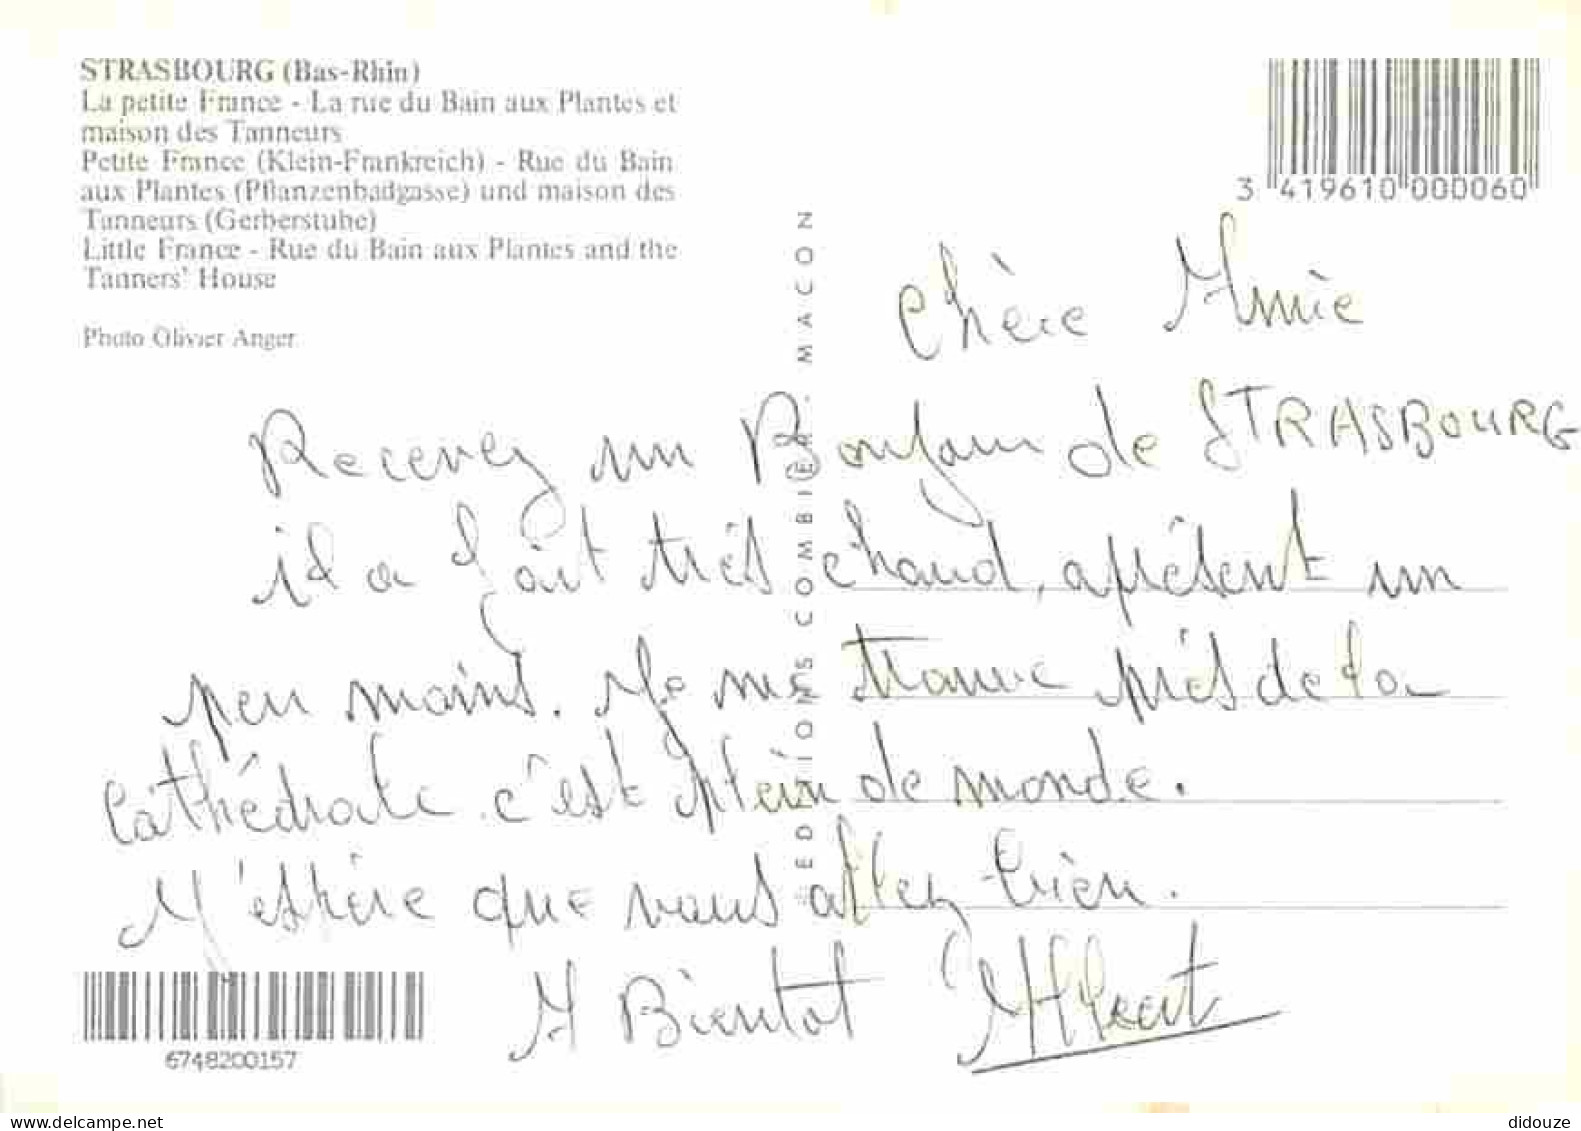 STRASBOURG (Bas-Rhin)
La petite France - La rue du Bain aux Plantes et
maison des Tanneurs
Petite France (Klein-Frankreich) - Rue du Bain
aux Plantes (Pflanzenbadgasse) und maison des
Tanneurs (Gerberstube)
Little France - Rue du Bain aux Plantes and the
Tanners' House
Photo Olivier Anger
3 419610 000060
EDITIONS COMBIER. MACON
Chère Amie
Recevez un Bonjour de STRASBOURG
il a fait très chaud, aprèsent un
peu moins. Je me trouve près de la
Cathédrale c'est plein de monde.
J'espère que vous allez bien.
A Bientot Albert
6748200157
didouze